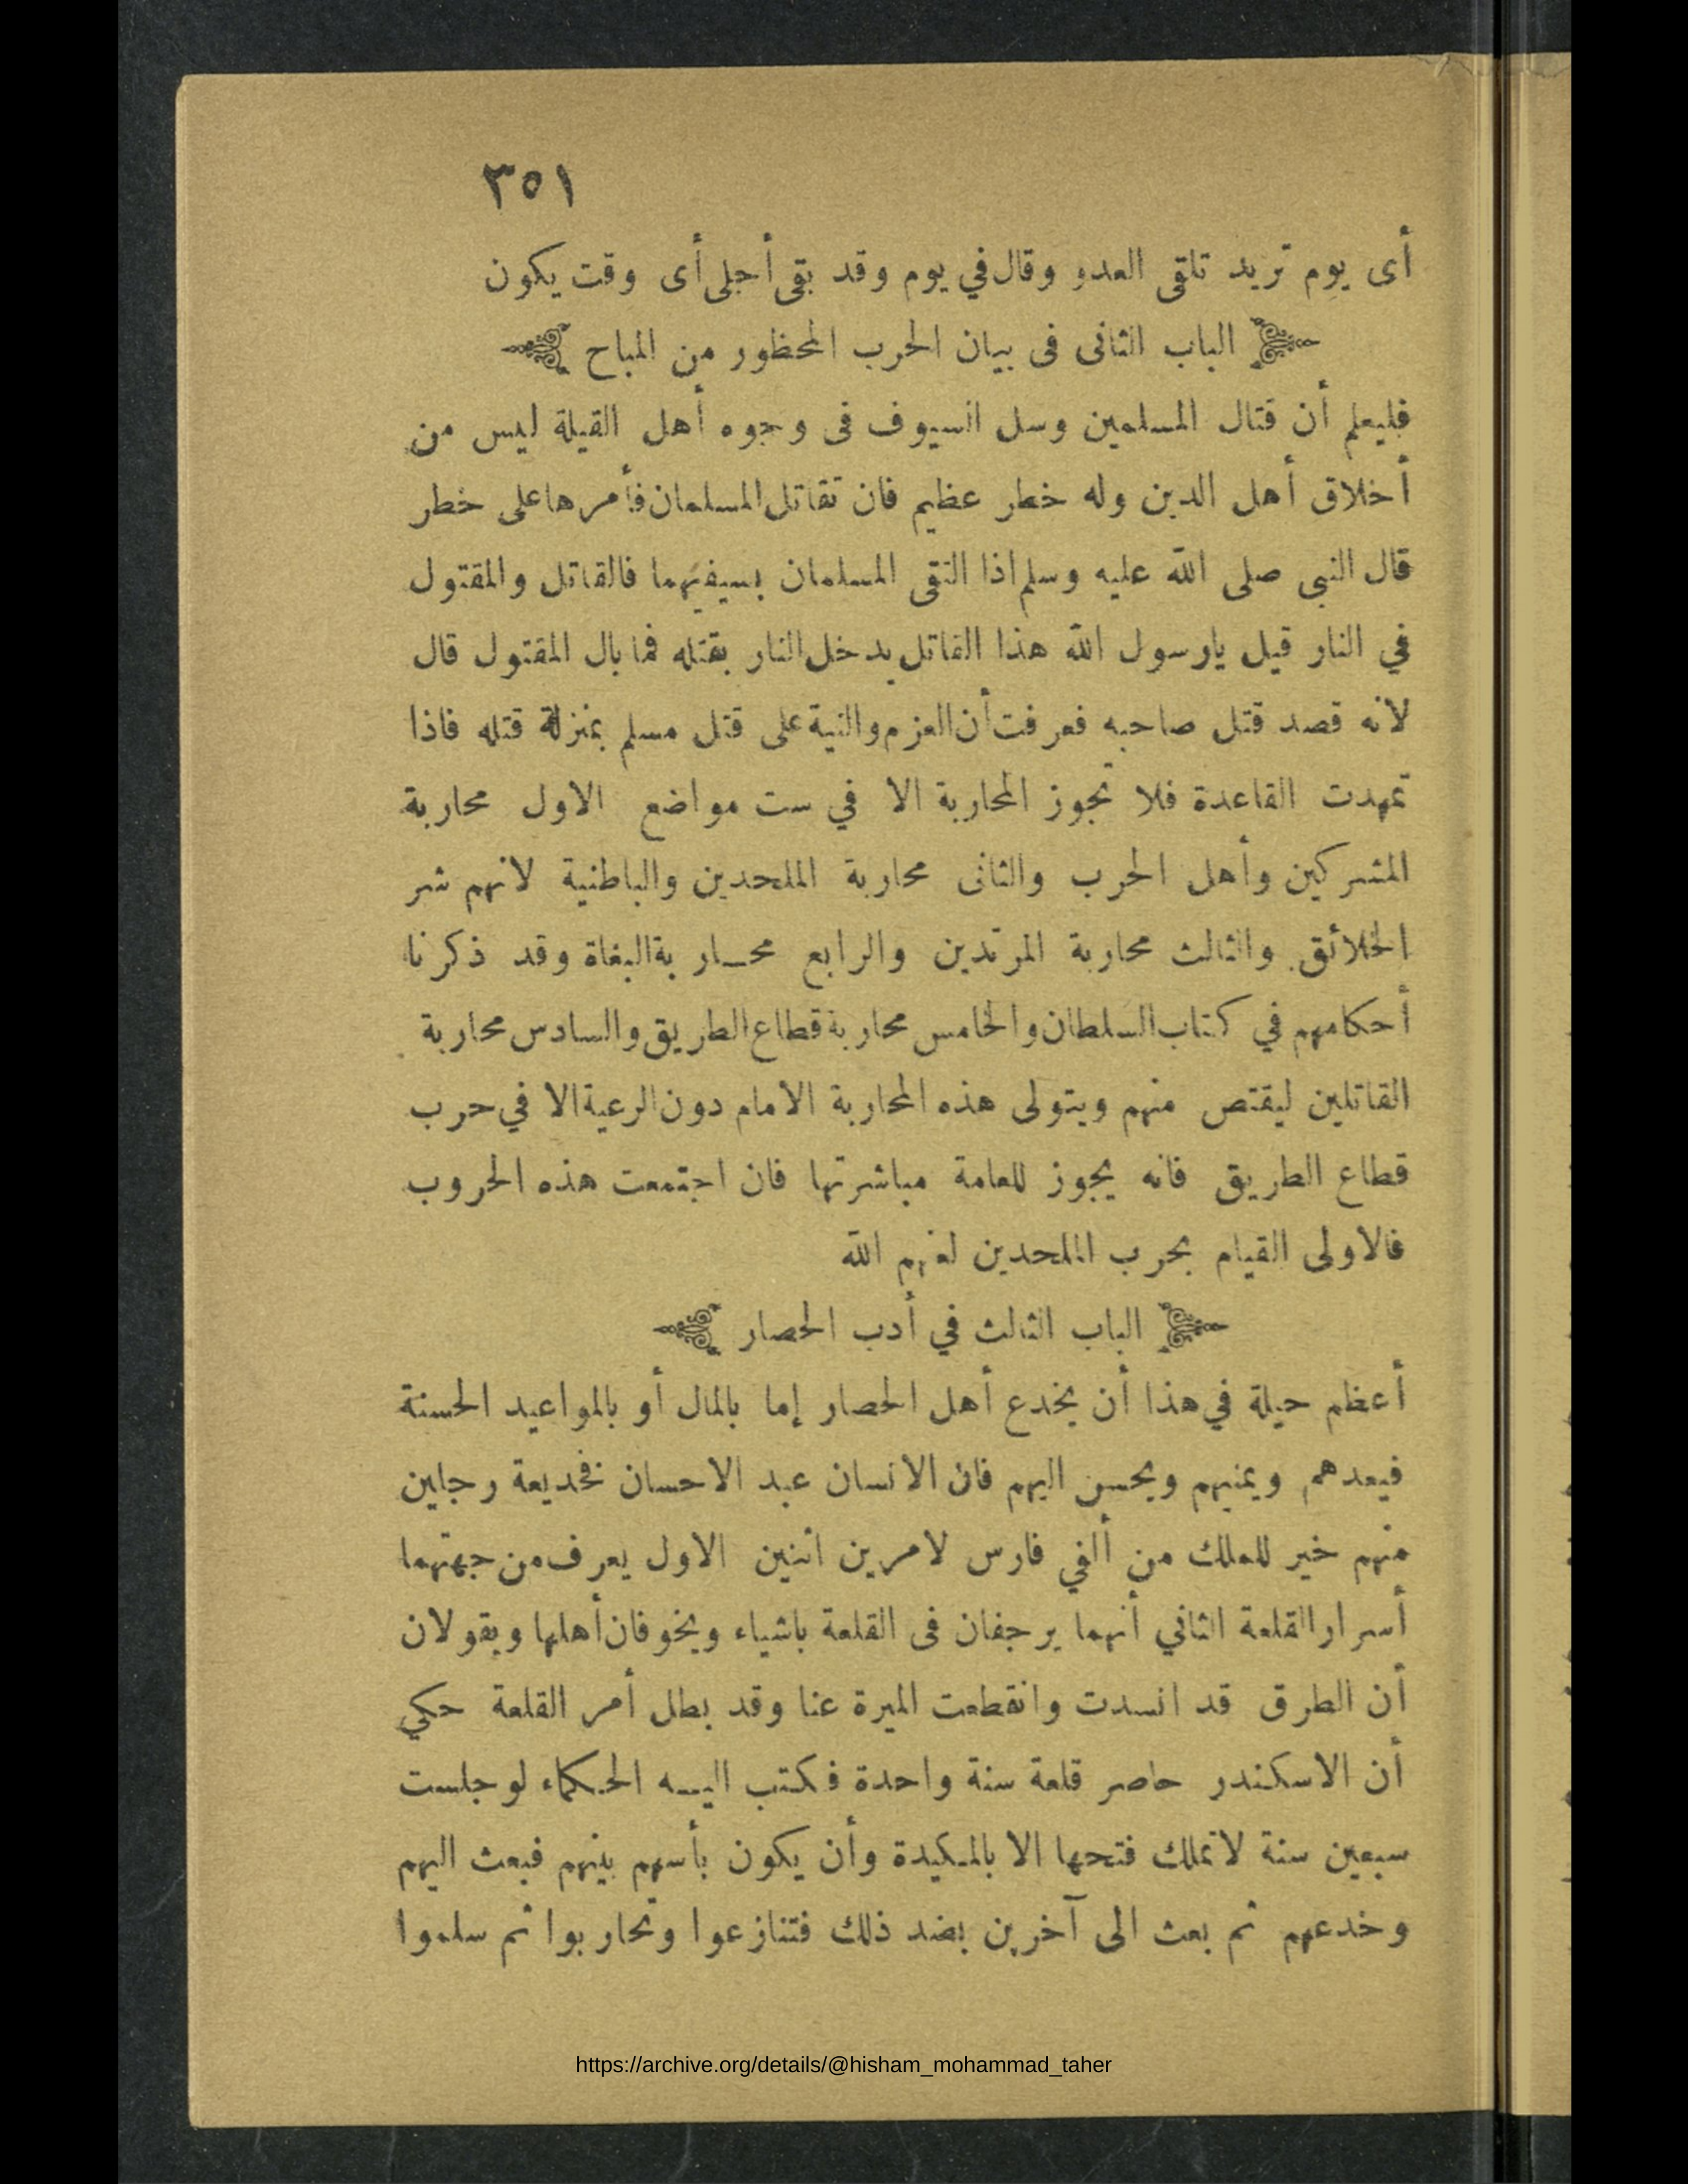 ٣٥١
أى يوم تريد تلقى العدو وقال في يوم وقد بقى أجلى أى وقت يكون
الباب الثانى فى بيان الحرب المحظور من المباح
فليعلم أن قتال المسلمين وسل السيوف فى وجوه أهل القبلة ليس من
أخلاق أهل الدين وله خطر عظيم فان تقاتل المسلمان فأمرها على خطر
قال النبى صلى الله عليه وسلم اذا التقى المسلمان بسيفيهما فالقاتل والمقتول
في النار قيل يارسول الله هذا القاتل يدخل النار بقتله فما بال المقتول قال
لانه قصد قتل صاحبه فعرفت أن العزم والنية على قتل مسلم بمنزلة قتله فاذا
تمهدت القاعدة فلا تجوز المحاربة الا في ست مواضع الاول محاربة
المشركين وأهل الحرب والثانى محاربة الملحدين والباطنية لانهم شر
الخلائق والثالث محاربة المرتدين والرابع محـاربة البغاة وقد ذكرنا
أحكامهم في كتاب السلطان والخامس محاربة قطاع الطريق والسادس محاربة
القاتلين ليقتص منهم ويتولى هذه المحاربة الامام دون الرعية الا في حرب
قطاع الطريق فانه يجوز للعامة مباشرتها فان اجتمعت هذه الحروب
فالاولى القيام بحرب الملحدين لعنهم الله
الباب الثالث في أدب الحصار
أعظم حيلة في هذا أن يخدع أهل الحصار إما بالمال أو بالمواعيد الحسنة
فيعدهم ويمنيهم ويحسن اليهم فان الانسان عبد الاحسان فخديعة رجلين
منهم خير للملك من ألفي فارس لامرين اثنين الاول يعرف من جهتهما
أسرار القلعة الثاني أنهما يرجفان فى القلعة باشياء ويخوفان أهلها ويقولان
أن الطرق قد انسدت وانقطعت الميرة عنا وقد بطل أمر القلعة حكي
أن الاسكندر حاصر قلعة سنة واحدة فكتب اليـه الحكماء لو جلست
سبعين سنة لاتملك فتحها الا بالمكيدة وأن يكون بأسهم بينهم فبعث اليهم
وخدعهم ثم بعث الى آخرين بضد ذلك فتنازعوا وتحاربوا ثم سلموا
https://archive.org/details/@hisham_mohammad_taher